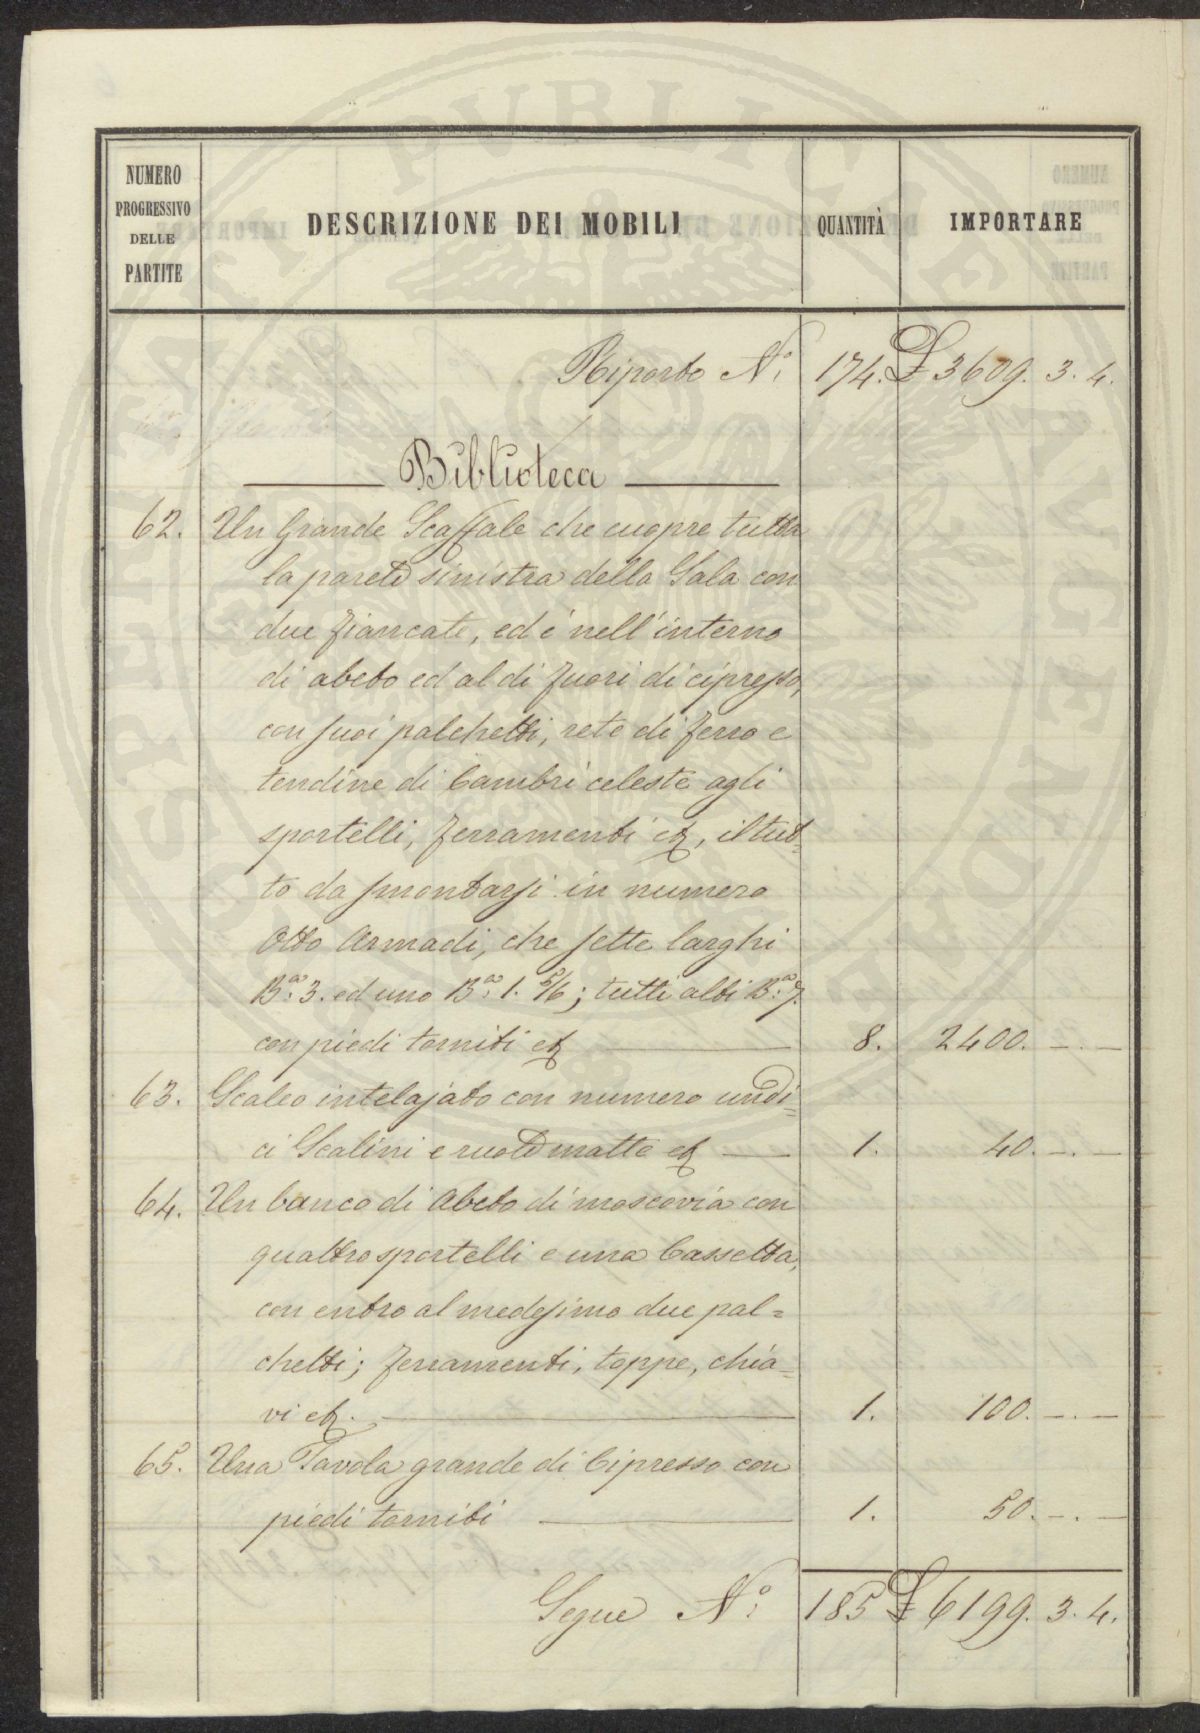 NUMERO PROGRESSIVO DELLE PARTITE | DESCRIZIONE DEI MOBILI | QUANTITÀ | IMPORTARE
Riporto N.° 174. £ 3609. 3. 4.
Biblioteca
62. Un Grande Scaffale che cuopre tutta
la parete sinistra della Sala con
due fiancate, ed è nell'interno
di abeto ed al di fuori di cipresso,
con suoi palchetti, rete di ferro e
tendine di Cambrì celeste agli
sportelli, ferramenti &, il tut=
to da smontarsi in numero
Otto Armadi, che sette larghi
B.a 3. ed uno B.a 1. 5/6; tutti alti B.a 7.
con piedi torniti & 8. 2400. —. —
63. Scaleo intelajato con numero undi=
ci Scalini e ruote matte & 1. 40. —. —
64. Un banco di Abeto di moscovia con
quattro sportelli e una Cassetta,
con entro al medesimo due pal=
chetti; ferramenti, toppe, chia=
vi &. 1. 100. —. —
65. Una Tavola grande di Cipresso con
piedi torniti 1. 50. —. —
Segue N.° 185 £ 6199. 3. 4.